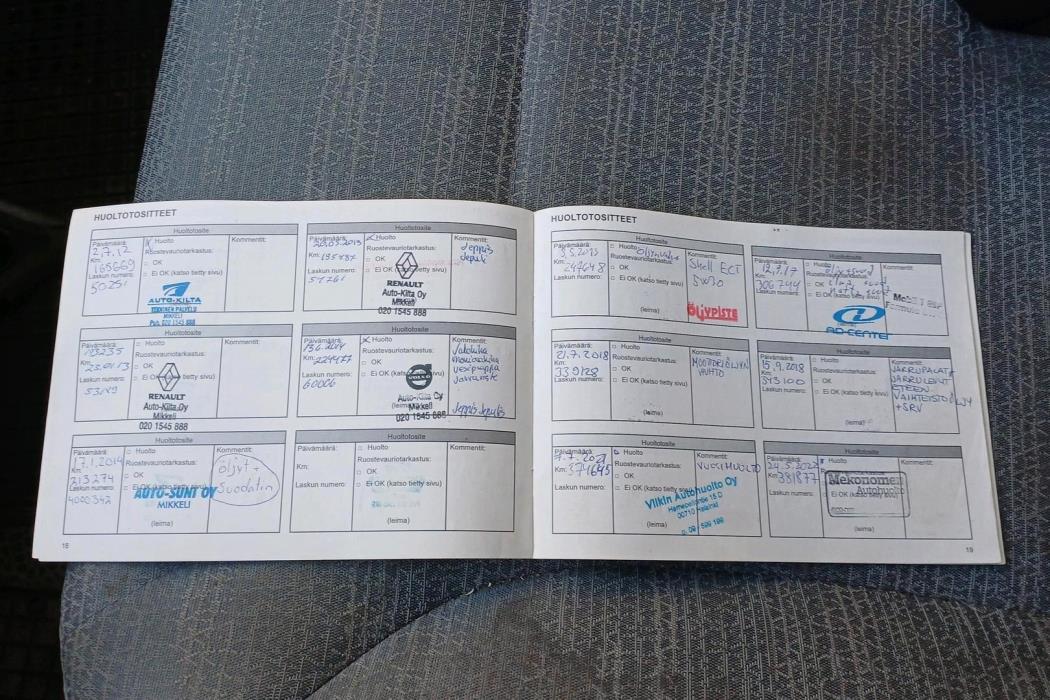 HUOLTOTOSITTEET
Huoltotosite
Päivämäärä:
2.7.12
Km:
165669
Laskun numero:
50251
Huolto
Ruostevauriotarkastus:
OK
Ei OK (katso tietty sivu)
Kommentit:
AUTO-KILTA
MIKKELI
Puh. 020 1545 888
Huoltotosite
Päivämäärä:
20.05.2013
Km:
Laskun numero:
Huolto
Ruostevauriotarkastus:
OK
Kommentit:
RENAULT
Auto-Kilta Oy
Mikkeli
020 1545 888
Huoltotosite
Päivämäärä:
Km:
Laskun numero:
Huolto
Ruostevauriotarkastus:
OK
Ei OK (katso tietty sivu)
Kommentit:
RENAULT
Auto-Kilta Oy
Mikkeli
020 1545 888
Huoltotosite
Päivämäärä:
13.6.2014
Km:
Laskun numero:
60006
Huolto
Ruostevauriotarkastus:
OK
Kommentit:
VOLVO
Auto-Kilta Oy
Mikkeli
020 1545 888
Huoltotosite
Päivämäärä:
17.1.2014
Km:
213274
Laskun numero:
4000342
Huolto
Ruostevauriotarkastus:
OK
Kommentit:
öljyt +
Suodatin
AUTO-SUNI OY
MIKKELI
(leima)
Huoltotosite
Päivämäärä:
Km:
Laskun numero:
Huolto
Ruostevauriotarkastus:
OK
Ei OK (katso tietty sivu)
Kommentit:
(leima)
18
HUOLTOTOSITTEET
Huoltotosite
Päivämäärä:
Km:
247648
Laskun numero:
Huolto
Ruostevauriotarkastus:
OK
Ei OK (katso tietty sivu)
(leima)
Kommentit:
Shell ECT
5W30
ÖLJYPISTE
Huoltotosite
Päivämäärä:
12.7.17
Km:
306744
Laskun numero:
Huolto
OK
Ei OK (katso tietty sivu)
Kommentit:
AD-CENTER
Huoltotosite
Päivämäärä:
21.7.2018
Km:
339128
Laskun numero:
Huolto
Ruostevauriotarkastus:
OK
Ei OK (katso tietty sivu)
(leima)
Kommentit:
MOOTTORIÖLJYN
VAIHTO
Huoltotosite
Päivämäärä:
15.9.2018
Km:
343100
Laskun numero:
Huolto
Ruostevauriotarkastus:
OK
Ei OK (katso tietty sivu)
(leima)
Kommentit:
JARRUPALAT +
JARRULEVYT
ETEEN
VAIHTEISTOÖLJY
+SRV
Huoltotosite
Päivämäärä:
7.7.2021
Km:
374645
Laskun numero:
Huolto
Ruostevauriotarkastus:
OK
Ei OK (katso tietty sivu)
(leima)
Kommentit:
VUOSIHUOLTO
Viikin Autohuolto Oy
00710 Helsinki
Huoltotosite
Päivämäärä:
24.5.2022
Km:
381877
Laskun numero:
Huolto
Kommentit:
Mekonomen
Autohuolto
(leima)
19